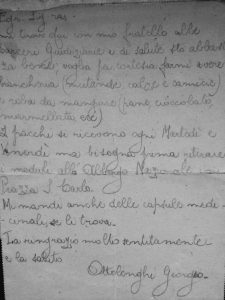 Egr. Sig. ras.
Mi trovo qui con mio fratello alle
carceri Giudiziarie e di salute sto abbast.
La bensì voglia per cortesia farmi avere
biancheria (mutande calze e camicie)
e roba da mangiare (pane, cioccolata
marmellata ecc)
I pacchi si ricevono ogni Martedì e
Venerdì ma bisogna prima ritirare
i moduli all' Albergo Nazionale in
Piazza S. Carlo.
Mi mandi anche delle capsule medi-
cinali, se li trova.
La ringrazio molto sentitamente
e la saluto
Ottolenghi Giorgio